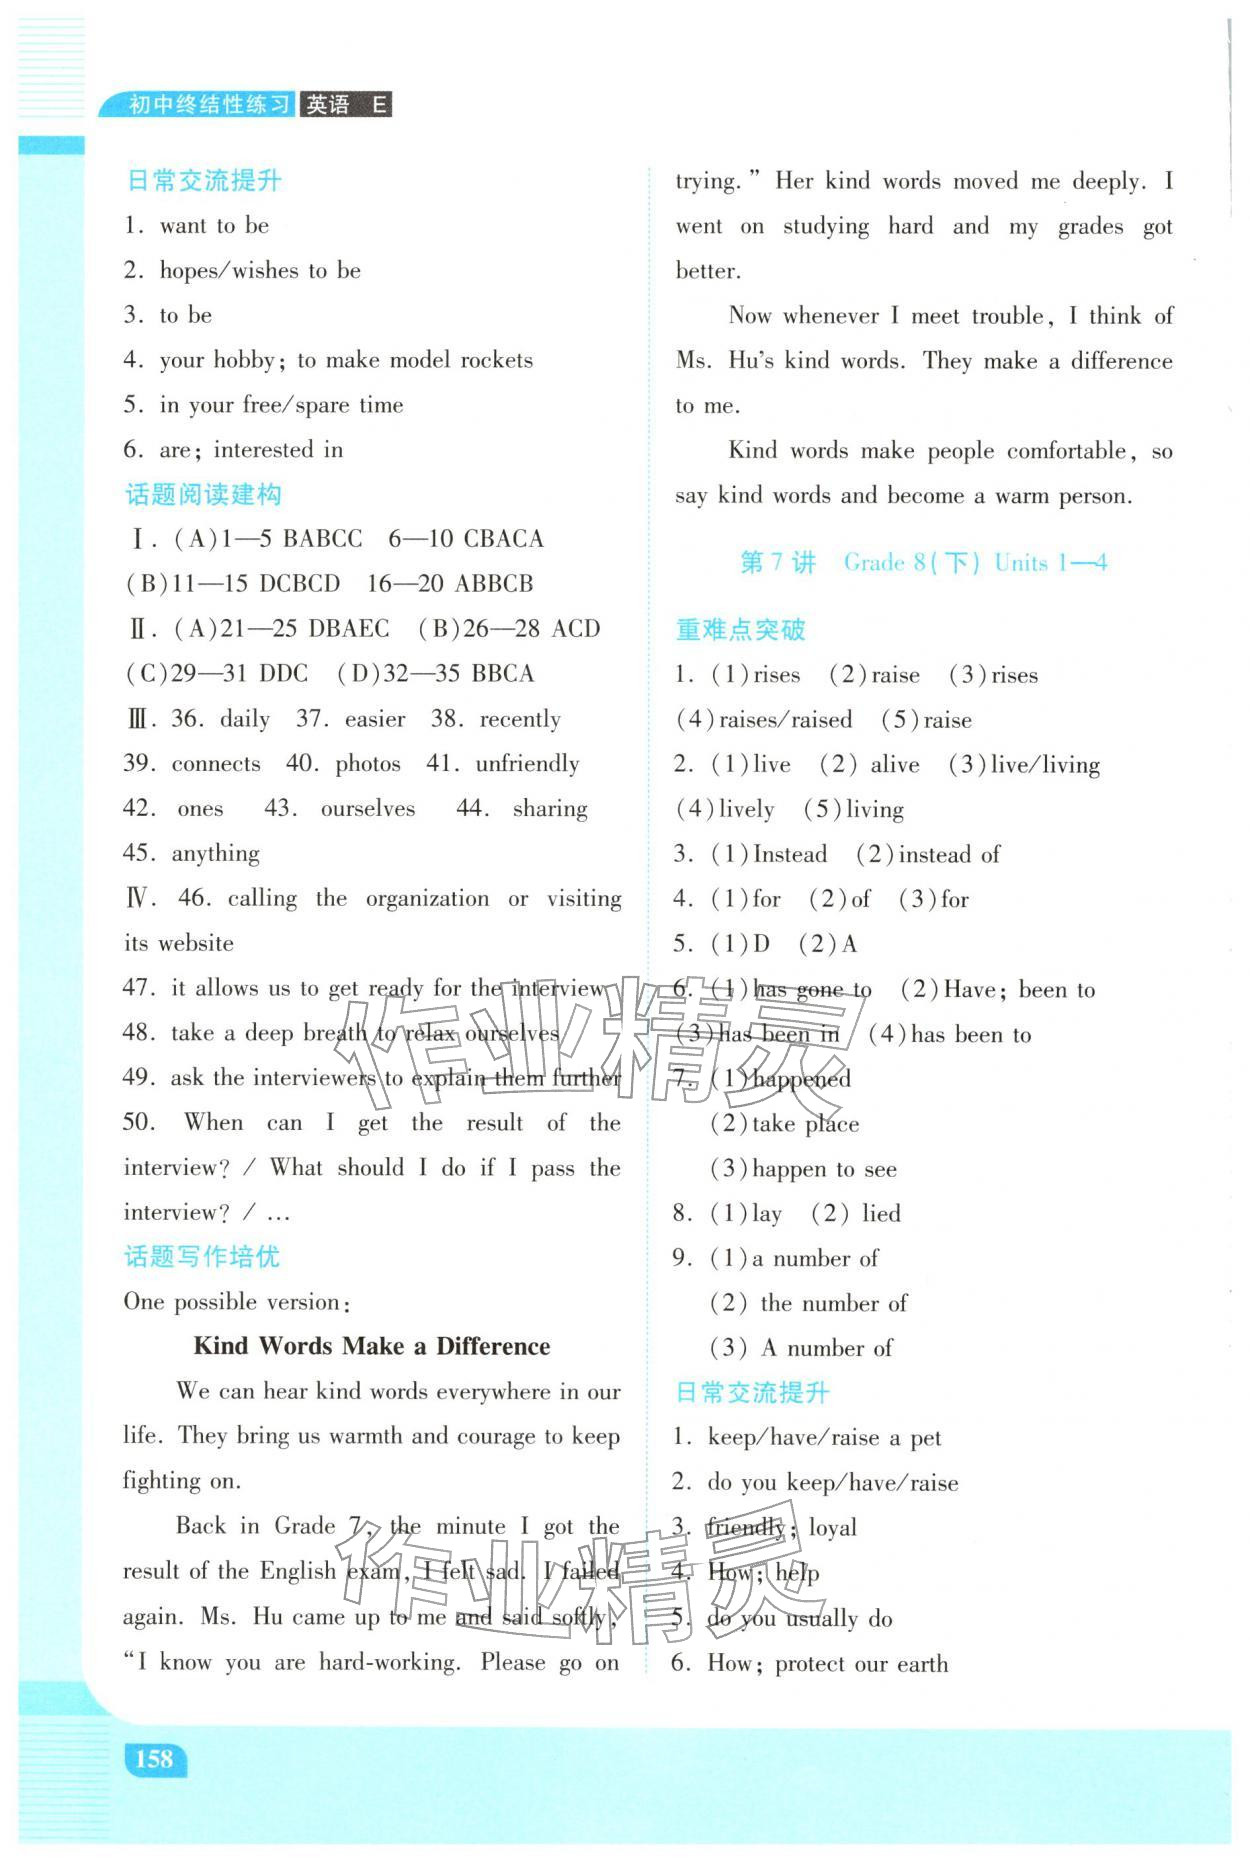 初中终结性练习 英语 E
日常交流提升
1. want to be
2. hopes/wishes to be
3. to be
4. your hobby; to make model rockets
5. in your free/spare time
6. are; interested in
话题阅读建构
Ⅰ. (A)1—5 BABCC 6—10 CBACA
(B)11—15 DCBCD 16—20 ABBCB
Ⅱ. (A)21—25 DBAEC (B)26—28 ACD
(C)29—31 DDC (D)32—35 BBCA
Ⅲ. 36. daily 37. easier 38. recently
39. connects 40. photos 41. unfriendly
42. ones 43. ourselves 44. sharing
45. anything
Ⅳ. 46. calling the organization or visiting
its website
47. it allows us to get ready for the interview
48. take a deep breath to relax ourselves
49. ask the interviewers to explain them further
50. When can I get the result of the
interview? / What should I do if I pass the
interview? / …
话题写作培优
One possible version:
Kind Words Make a Difference
We can hear kind words everywhere in our
life. They bring us warmth and courage to keep
fighting on.
Back in Grade 7, the minute I got the
result of the English exam, I felt sad. I failed
again. Ms. Hu came up to me and said softly,
“I know you are hard-working. Please go on
trying.” Her kind words moved me deeply. I
went on studying hard and my grades got
better.
Now whenever I meet trouble, I think of
Ms. Hu's kind words. They make a difference
to me.
Kind words make people comfortable, so
say kind words and become a warm person.
第 7 讲 Grade 8(下) Units 1—4
重难点突破
1. (1)rises (2)raise (3)rises
(4)raises/raised (5)raise
2. (1)live (2) alive (3)live/living
(4)lively (5)living
3. (1)Instead (2)instead of
4. (1)for (2)of (3)for
5. (1)D (2)A
6. (1)has gone to (2)Have; been to
(3)has been in (4)has been to
7. (1)happened
(2)take place
(3)happen to see
8. (1)lay (2) lied
9. (1)a number of
(2) the number of
(3) A number of
日常交流提升
1. keep/have/raise a pet
2. do you keep/have/raise
3. friendly; loyal
4. How; help
5. do you usually do
6. How; protect our earth
158
作业精灵
作业精灵